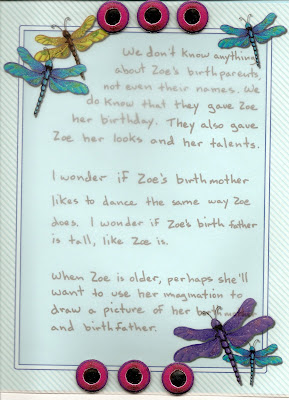 We don't know anything
about Zoe's birthparents,
not even their names. We
do know that they gave Zoe
her birthday. They also gave
Zoe her looks and her talents.
I wonder if Zoe's birthmother
likes to dance the same way Zoe
does. I wonder if Zoe's birth father
is tall, like Zoe is.
When Zoe is older, perhaps she'll
want to use her imagination to
draw a picture of her birth mother
and birthfather.